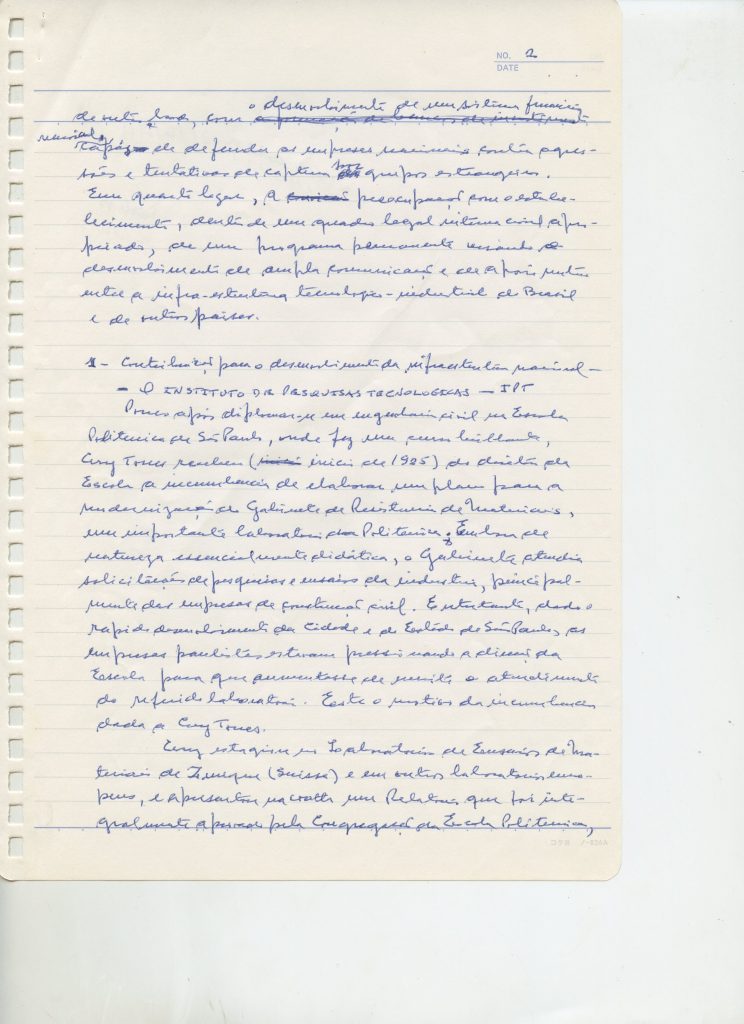 NO. 2
DATE
o desenvolvimento de um sistema financeiro
de outro lado, com
nacional capaz de defender as empresas nacionais contra agres-
sões e tentativas de captura por grupos estrangeiros.
Em quarto lugar, a preocupação com o estabe-
lecimento, dentro de um quadro legal internacional apro-
priado, de um programa permanente visando o
desenvolvimento de ampla comunicação e de apoio mútuo
entre a infra-estrutura tecnológico-industrial do Brasil
e de outros países.
1 - Contribuição para o desenvolvimento da infraestrutura nacional -
- O INSTITUTO DE PESQUISAS TECNOLOGICAS - IPT
Pouco após diplomar-se em engenharia civil na Escola
Politecnica de São Paulo, onde fez um curso brilhante,
Ary Torres recebeu (início de 1925) do diretor da
Escola a incumbência de elaborar um plano para a
modernização do Gabinete de Resistencia de Materiais,
um importante laboratorio da Politecnica. Embora de
natureza essencialmente didática, o Gabinete atendia
solicitações de pesquisas e ensaios da industria, principal-
mente das empresas de construção civil. Entretanto, dado o
rapido desenvolvimento da Cidade e do Estado de São Paulo, as
empresas paulistas estavam pressionando a direção da
Escola para que aumentasse de muito o atendimento
do referido laboratorio. Este o motivo da incumbencia
dada a Ary Torres.
Ary estagiou no Laboratorio de Ensaios de Ma-
teriais de Zurique (Suissa) e em outros laboratorios euro-
peus, e apresentou na volta um Relatorio que foi inte-
gralmente aprovado pela Congregação da Escola Politecnica,